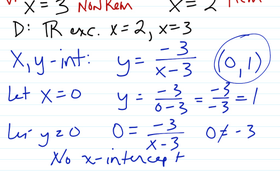 x = 3 Non Rem x = 2
D: TR exc. x = 2, x = 3
X, y-int: y = -3/(x-3) (0, 1)
Let x = 0 y = -3/(0-3) = -3/-3 = 1
Let y = 0 0 = -3/(x-3) 0 ≠ -3
No x-intercept